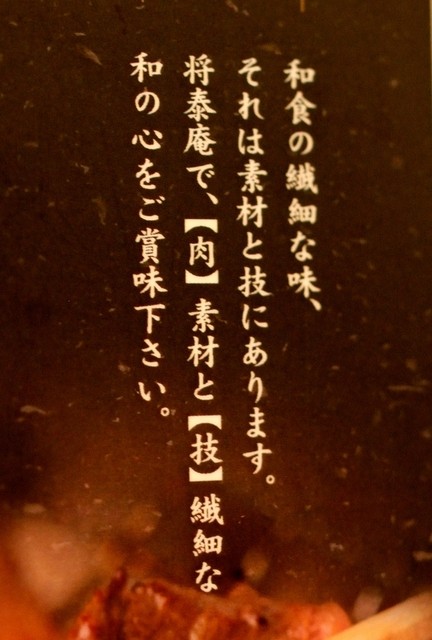 和食の繊細な味、
それは素材と技にあります。
将泰庵で、【肉】素材と【技】繊細な
和の心をご賞味下さい。